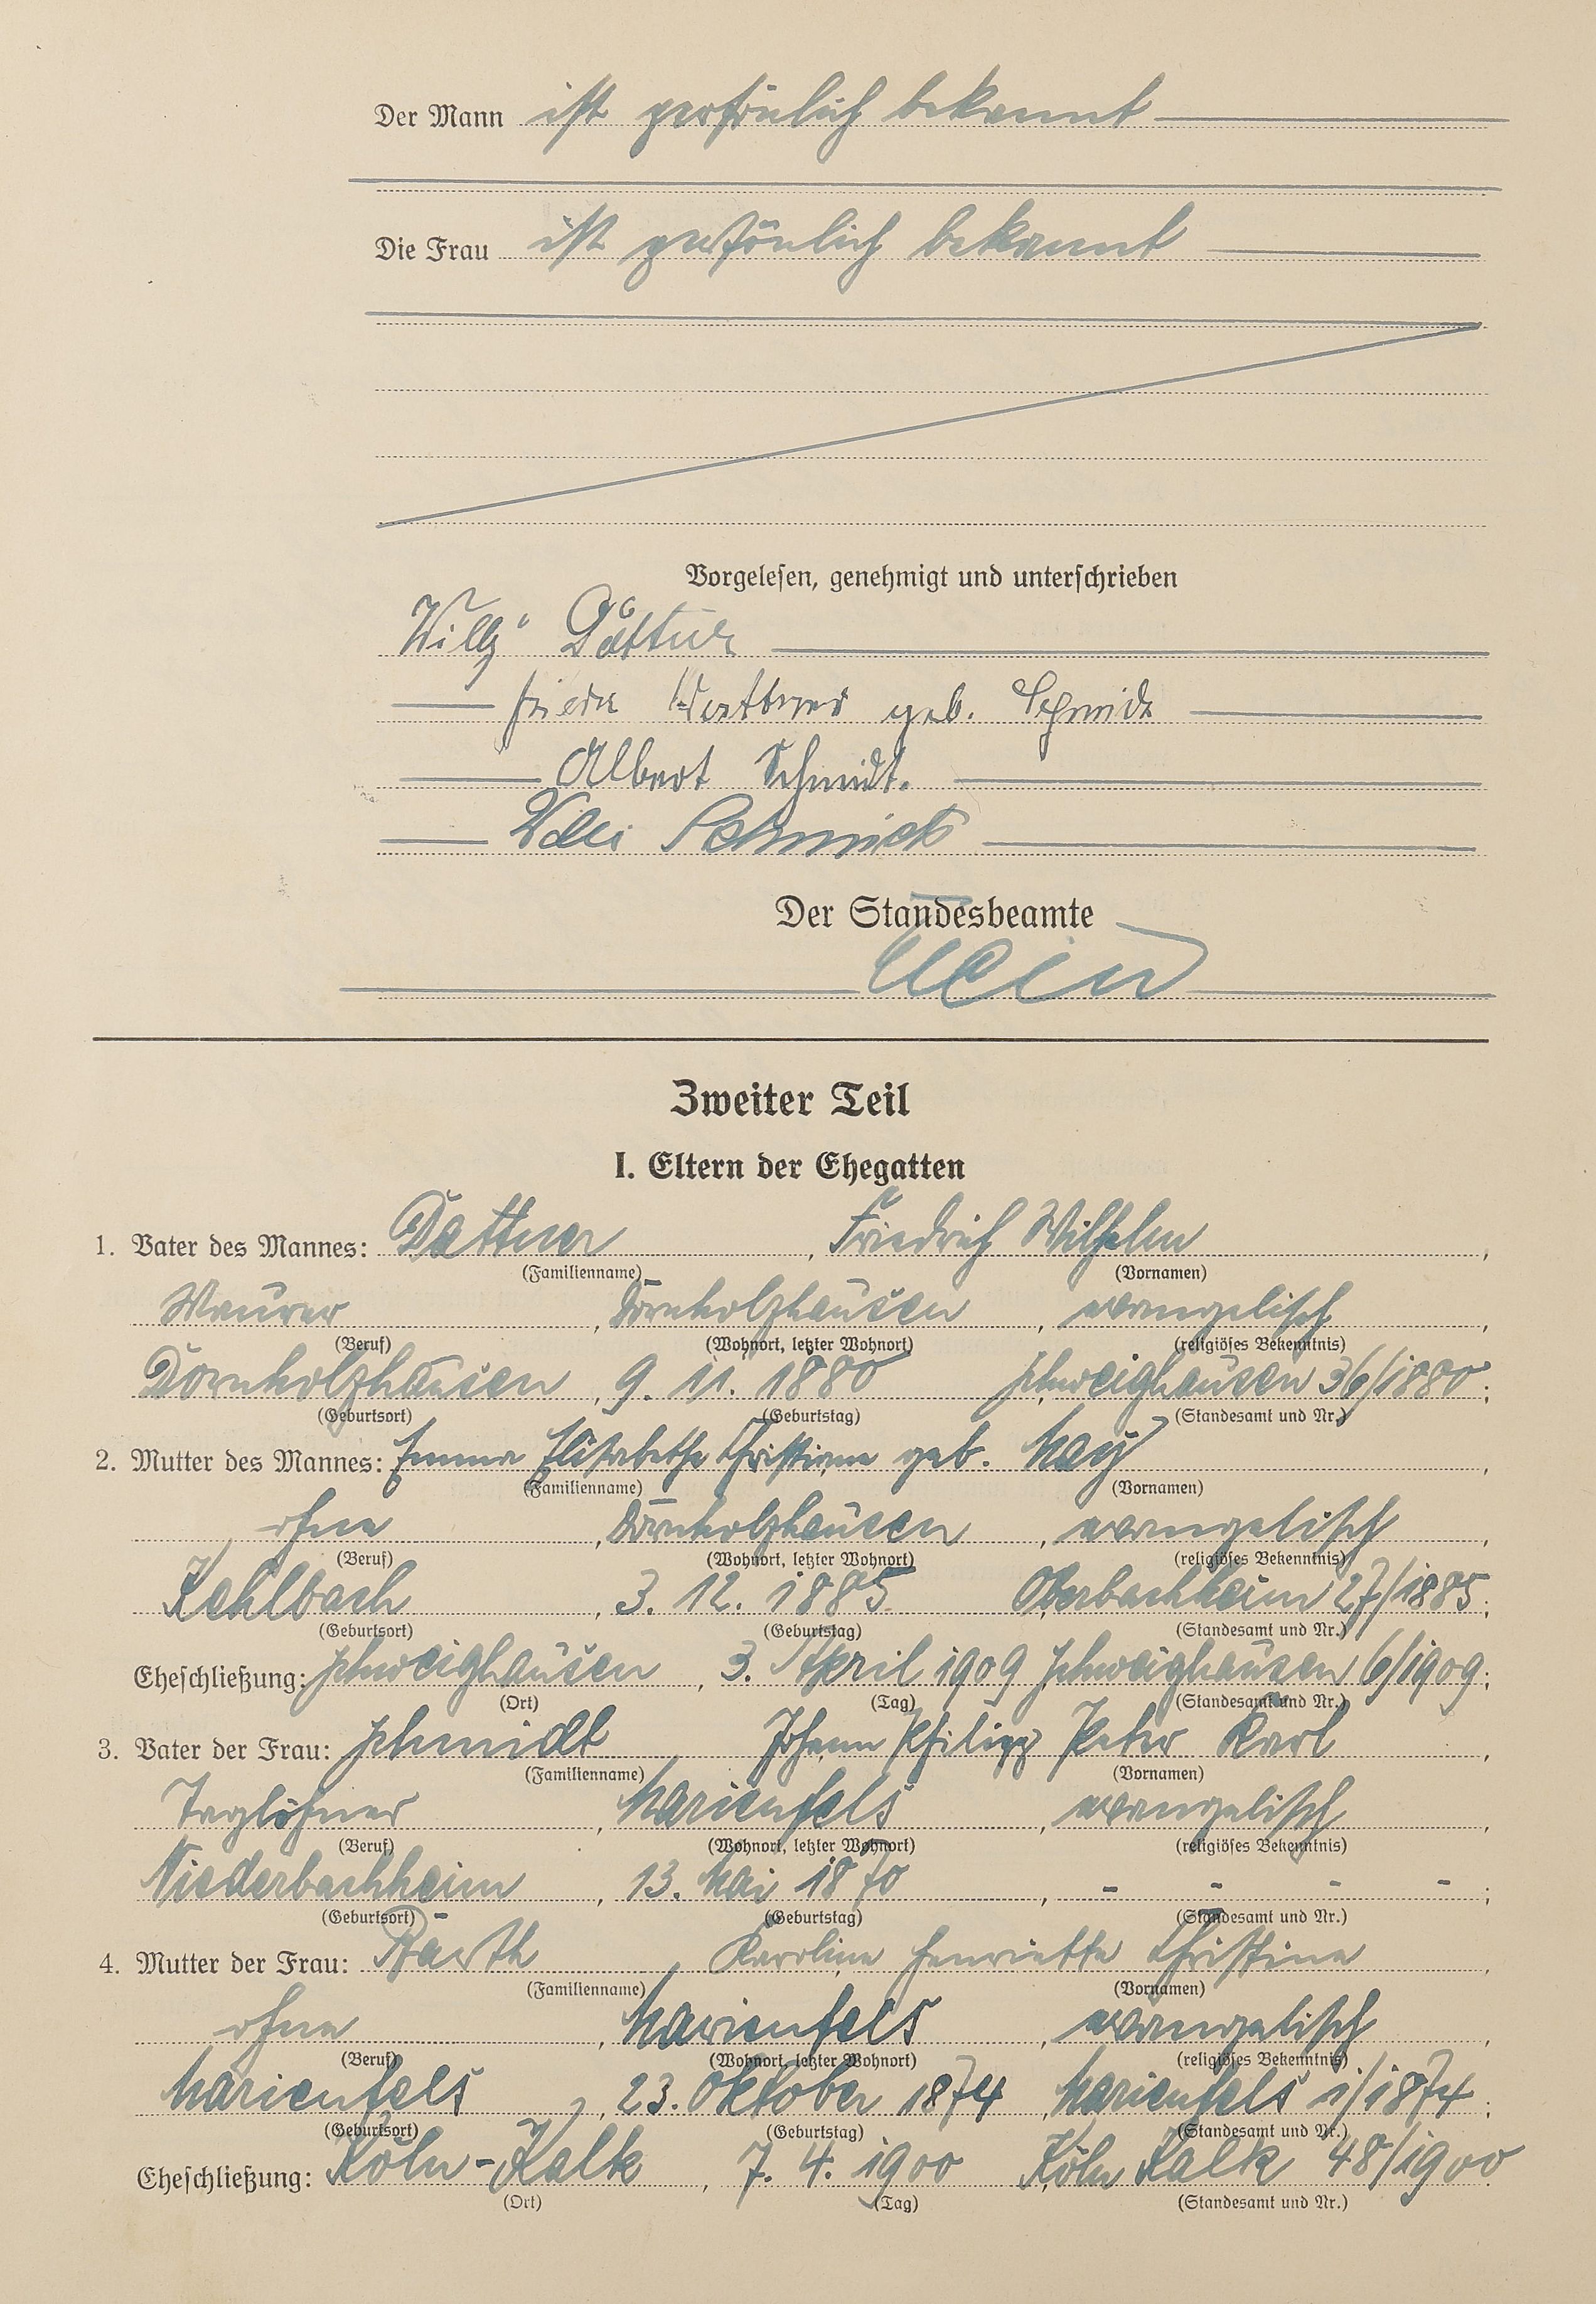 Der Mann ist persönlich bekannt
Die Frau ist persönlich bekannt
Vorgelesen, genehmigt und unterschrieben
Willy Dattner
Frieda Dattner geb. Schmidt
Albert Schmidt.
Willi Schmidt
Der Standesbeamte
Zweiter Teil
I. Eltern der Ehegatten
1. Vater des Mannes: Dattner, Friedrich Wilhelm,
(Familienname) (Vornamen)
Maurer, Dornholzhausen, evangelisch,
(Beruf) (Wohnort, letzter Wohnort) (religiöses Bekenntnis)
Dornholzhausen, 9. 11. 1880 Schweighausen 36/1880;
(Geburtsort) (Geburtstag) (Standesamt und Nr.)
2. Mutter des Mannes: Emma Elisabethe Christiane geb. May,
(Familienname) (Vornamen)
ohne, Dornholzhausen, evangelisch,
(Beruf) (Wohnort, letzter Wohnort) (religiöses Bekenntnis)
Kehlbach, 3. 12. 1885 Oberbachheim 27/1885;
(Geburtsort) (Geburtstag) (Standesamt und Nr.)
Eheschließung: Schweighausen, 3. April 1909 Schweighausen 6/1909;
(Ort) (Tag) (Standesamt und Nr.)
3. Vater der Frau: Schmidt, Johann Philipp Peter Karl,
(Familienname) (Vornamen)
Taglöhner, Marienfels, evangelisch,
(Beruf) (Wohnort, letzter Wohnort) (religiöses Bekenntnis)
Niederbachheim, 13. Mai 1870, - - - -;
(Geburtsort) (Geburtstag) (Standesamt und Nr.)
4. Mutter der Frau: Barth, Karoline Henriette Christine,
(Familienname) (Vornamen)
ohne, Marienfels, evangelisch,
(Beruf) (Wohnort, letzter Wohnort) (religiöses Bekenntnis)
Marienfels, 23. Oktober 1874, Marienfels 1/1874;
(Geburtsort) (Geburtstag) (Standesamt und Nr.)
Eheschließung: Köln-Kalk, 7. 4. 1900 Köln Kalk 48/1900
(Ort) (Tag) (Standesamt und Nr.)